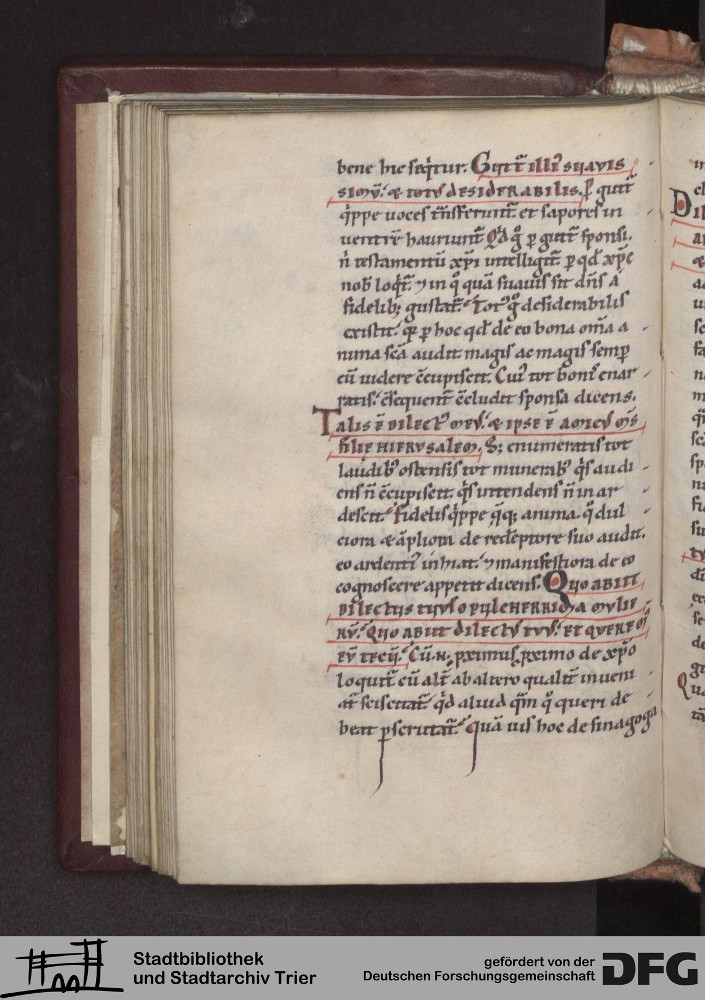 bene hic seq̇tur. Gutt̄ illi᷒ suavis
simū. & totꝰ desiderabilis. P̱ gutt̄
q̇ppe voces t̄nsferunt̄. et sapores in
ventrē hauriunt̄. Qd̄ g̊ ꝑ gutt̄ sponsi.
n̄ testamentū xp̄i intelligit̄. ꝑ qd̄ xp̄c
nob̄ loq̇t̄. ⁊ in q̊ quā suavis sit dn̄s a
fidelib; gustat̄. Totꝰ g̊ desiderabilis
existit. q̄ ꝑ hoc qd̄ de eo bona om̄a a
nima sc̄a audit. magis ac magis semꝑ
eū videre c̄cupiscit. Cuiꝰ tot bonis enar
ratis. c̄sequent̄ c̄cludit sponsa dicens.
Talis ē dilectꝰ meꝰ. & ipse ē amicꝰ mꝰs
filie hierusalem. S; enumeratis tot
laudib᷒ ostensis tot munerib᷒ q̇s audi
ens n̄ c̄cupiscit. q̇s intendens n̄ in ar
descit. Fidelis q̇ppe q̄q; anima. q̊ dul
ciora & āpliora de redēptore suo audit.
eo ardentiꝰ inhiat. ⁊ manifestiora de eo
cognoscere appetit dicens. Quo abiit
dilectus tuus o pulcherrima mulie
rū. Quo abiit dilectꝰ tuꝰ. et querem᷒
eū tecū. Cū .n. ꝓximus ꝓximo de xp̄o
loquit̄. cū alt̄ ab altero qualit̄ inveni
at̄ sciscitat̄. q̇d aliud q̄m q̊ queri de
beat ꝑscrutat̄. Quā vis hoc de sinagoga
Stadtbibliothek
und Stadtarchiv Trier
gefördert von der
Deutschen Forschungsgemeinschaft
DFG